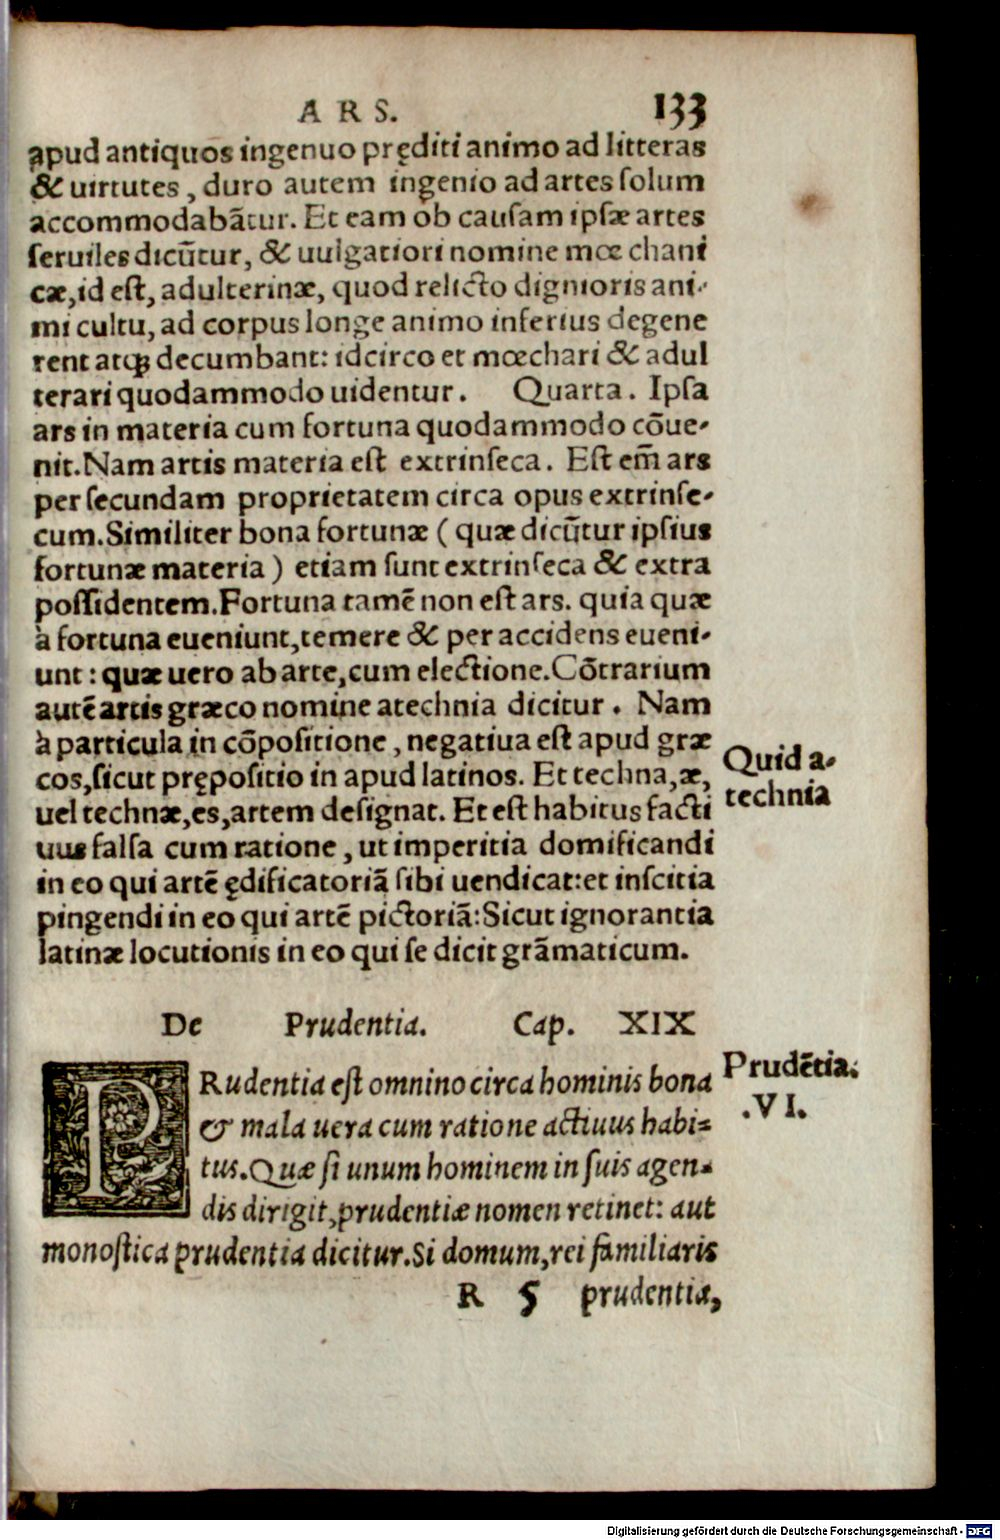 ARS. 133
apud antiquos ingenuo pręditi animo ad litteras
& uirtutes, duro autem ingenio ad artes ſolum
accommodabātur. Et eam ob cauſam ipſæ artes
ſeruiles dicūtur, & uulgatiori nomine mœchani
cæ, id eſt, adulterinæ, quod relicto dignioris ani-
mi cultu, ad corpus longe animo inferius degene
rent atqꝫ decumbant: idcirco et mœchari & adul
terari quodammodo uidentur. Quarta. Ipſa
ars in materia cum fortuna quodammodo cōue-
nit. Nam artis materia eſt extrinſeca. Eſt em̄ ars
per ſecundam proprietatem circa opus extrinſe-
cum. Similiter bona fortunæ (quæ dicūtur ipſius
fortunæ materia) etiam ſunt extrinſeca & extra
poſſidentem. Fortuna tamē non eſt ars. quia quæ
à fortuna eueniunt, temere & per accidens eueni-
unt: quæ uero ab arte, cum electione. Cōtrarium
autē artis græco nomine atechnia dicitur. Nam
à particula in cōpoſitione, negatiua eſt apud græ
cos, ſicut prępoſitio in apud latinos. Et techna, æ,
uel technæ, es, artem deſignat. Et eſt habitus facti
uus falſa cum ratione, ut imperitia domificandi
in eo qui artē ędificatoriā ſibi uendicat: et inſcitia
pingendi in eo qui artē pictoriā: Sicut ignorantia
latinæ locutionis in eo qui ſe dicit grāmaticum.
Quid a-
technia
De Prudentia. Cap. XIX
PRudentia eſt omnino circa hominis bona
& mala uera cum ratione actiuus habi-
tus. Quæ ſi unum hominem in ſuis agen-
dis dirigit, prudentiæ nomen retinet: aut
monoſtica prudentia dicitur. Si domum, rei familiaris
R 5 prudentia,
Prudētia.
.VI.
Digitalisierung gefördert durch die Deutsche Forschungsgemeinschaft - DFG